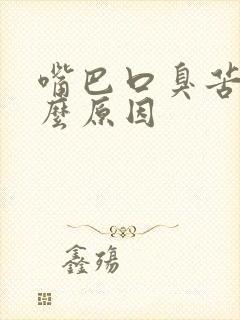 嘴巴口臭苦
麼原因
鑫殇